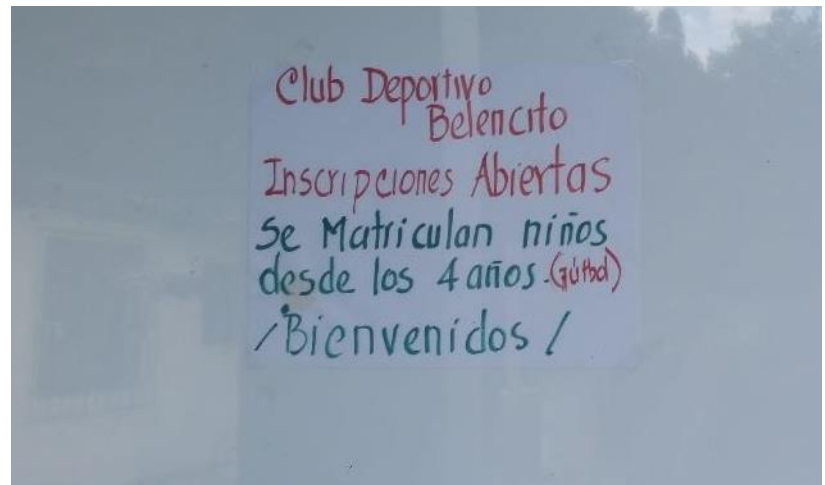 Club Deportivo
Belencito
Inscripciones Abiertas
Se Matriculan niños
desde los 4 años. (fútbol)
¡Bienvenidos!